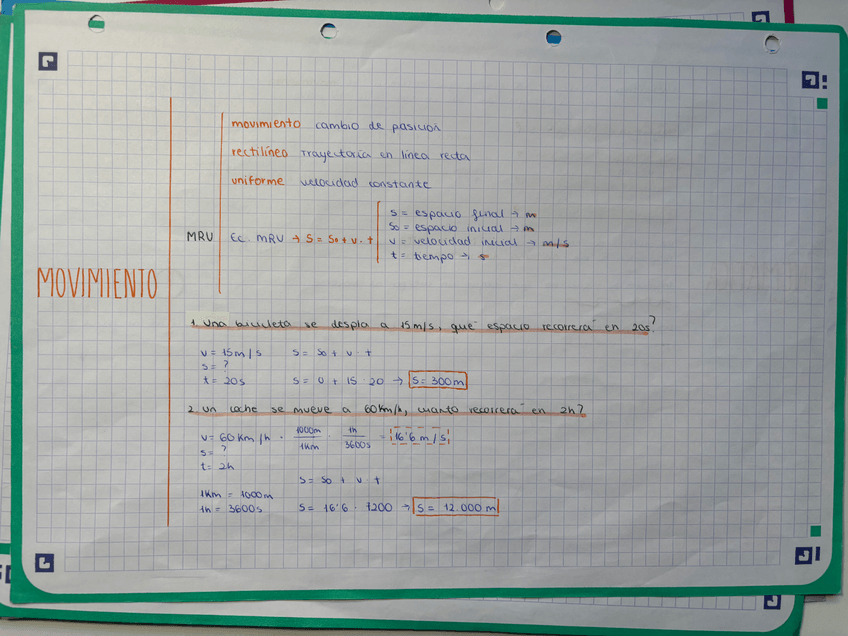 movimiento cambio de pasición
rectilíneo trayectoria en línea recta
uniforme velocidad constante
MRU Ec. MRU → S = So + v · t
s = espacio final → m
So = espacio inicial → m
v = velocidad inicial → m/s
t = tiempo → s
MOVIMIENTO
1. Una bicicleta se despla a 15m/s, que espacio recorrerá en 20s?
v = 15m/s S = So + v · t
s = ?
t = 20s S = 0 + 15 · 20 → S = 300m
2. Un coche se mueve a 60Km/h, cuanto recorrerá en 2h?
v = 60 Km/h · 1000m/1Km · 1h/3600s = 16'6 m/s
s = ?
t = 2h
S = So + v · t
1Km = 1000m
1h = 3600s S = 16'6 · 7200 → S = 12.000 m